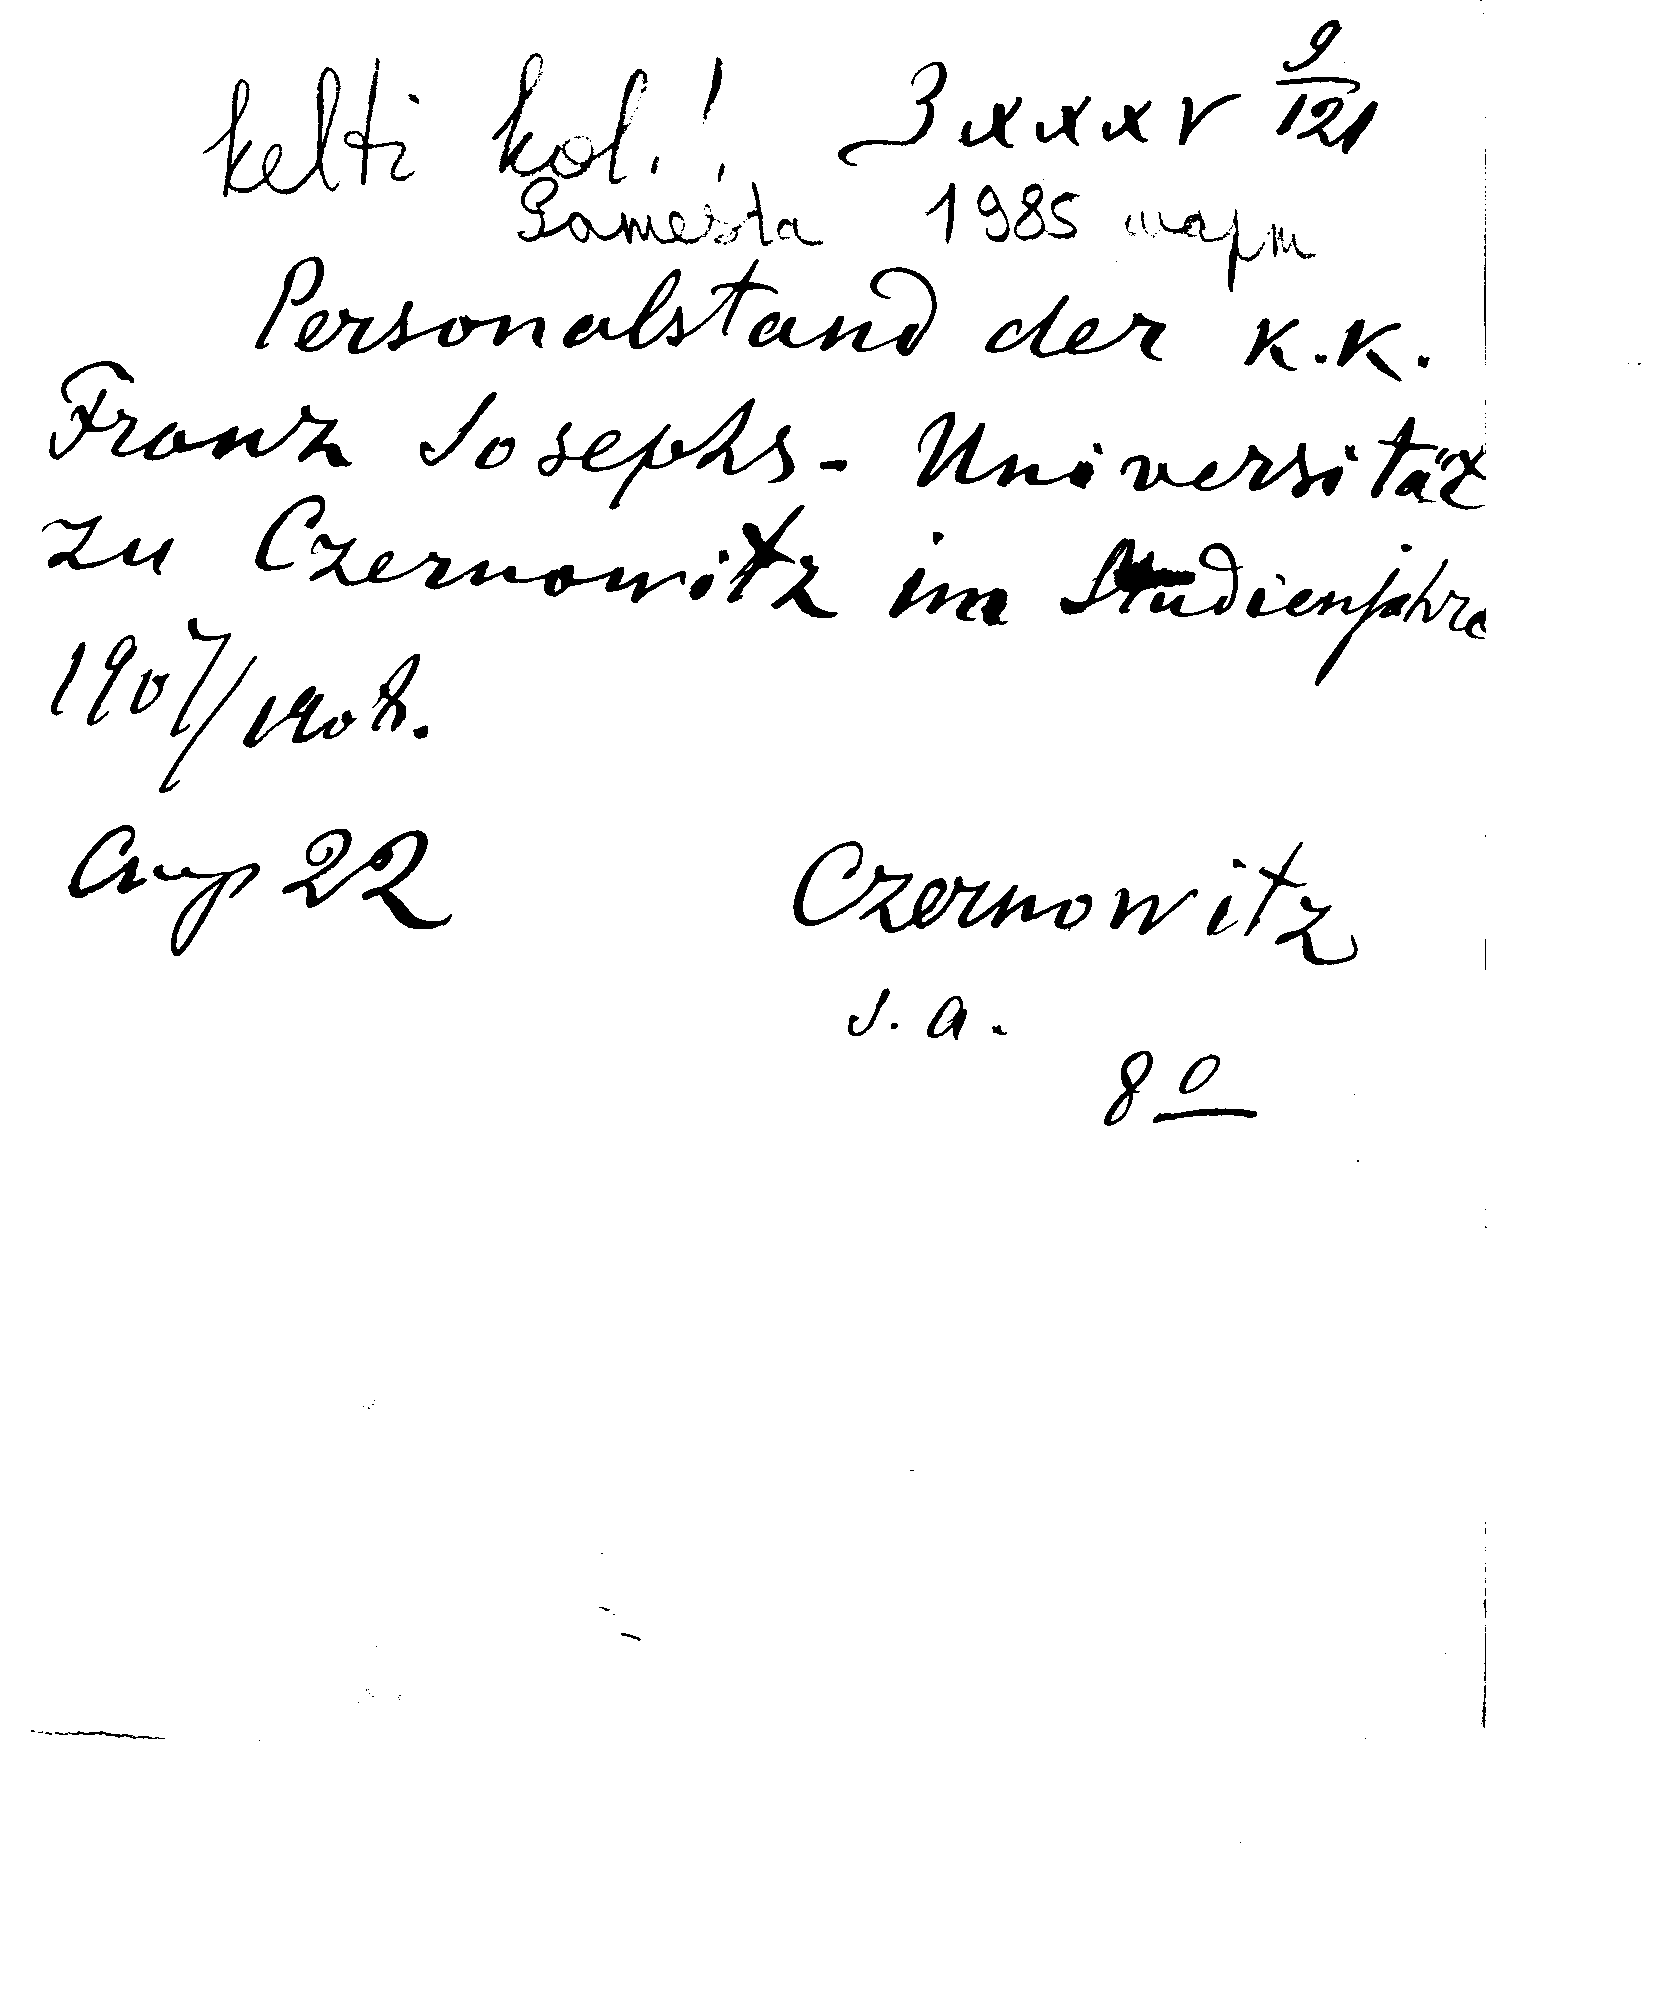 kelti kol.! 3 xxxV 9/121
1985 март
Personalstand der K.K.
Franz Josephs-Universität
zu Czernowitz im Studienjahre
1907/1908.
Стр 22 Czernowitz
s. a.
8º